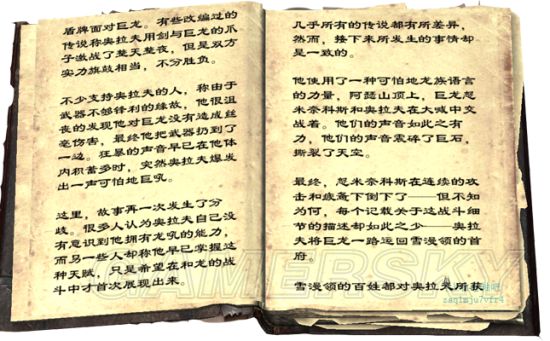 盾牌面对巨龙。有些改编过的
传说称奥拉夫用剑与巨龙的爪
子激战了整天整夜，但是双方
实力旗鼓相当，不分胜负。
不少支持奥拉夫的人，称由于
武器不够锋利的缘故，他很沮
丧的发现他对巨龙没有造成丝
毫伤害，最终他把武器扔到了
一边。狂暴的声音早已在他体
内积蓄多时，突然奥拉夫爆发
出一声可怕地巨吼。
这里，故事再一次发生了分
歧。很多人认为奥拉夫自己没
有意识到他拥有龙吼的能力，
而另一些人却称他早已掌握这
种天赋，只是希望在和龙的战
斗中才首次展现出来。
几乎所有的传说都有所差异，
然而，接下来所发生的事情却
是一致的。
他使用了一种可怕地龙族语言
的力量，阿瑟山顶上，巨龙忍
米奈科斯和奥拉夫在大喊中交
战着。他们的声音如此之有
力，他们的声震碎了巨石，
撕裂了天空。
最终，忍米奈科斯在连续的攻
击和疲惫下倒下了——但不知
为何，每个记载关于这战斗细
节的描述却如此之少——奥拉
夫将巨龙一路运回雪漫领的首
府。
雪漫领的百姓都对奥拉夫所获
GAMERSKY
zaqimju7vfr4